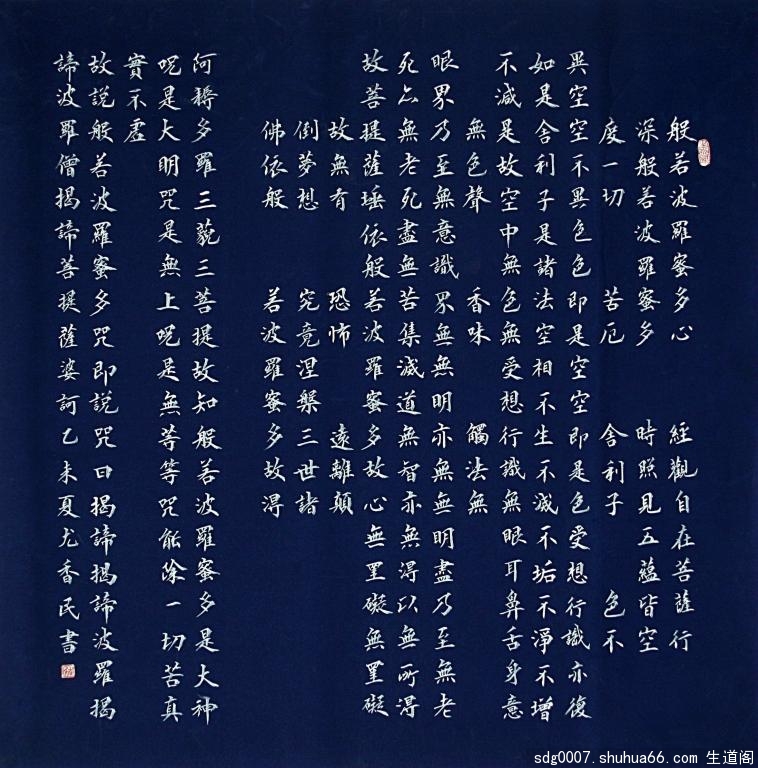 般若波羅蜜多心 經觀自在菩薩行
深般若波羅蜜多 時照見五蘊皆空
度一切 苦厄 舍利子 色不
異空空不異色色即是空空即是色受想行識亦復
如是舍利子是諸法空相不生不滅不垢不淨不增
不減是故空中無色無受想行識無眼耳鼻舌身意
無色聲 香味 觸法無
眼界乃至無意識界無無明亦無無明盡乃至無老
死亦無老死盡無苦集滅道無智亦無得以無所得
故菩提薩埵依般若波羅蜜多故心無罣礙無罣礙
故無有 恐怖 遠離顛
倒夢想 究竟涅槃三世諸
佛依般 若波羅蜜多故得
阿耨多羅三藐三菩提故知般若波羅蜜多是大神
呪是大明咒是無上呪是無等等咒能除一切苦真
實不虛
故說般若波羅蜜多咒即說咒曰揭諦揭諦波羅揭
諦波羅僧揭諦菩提薩婆訶乙未夏尤香民書
sdg0007.shuhua66.com 生道阁